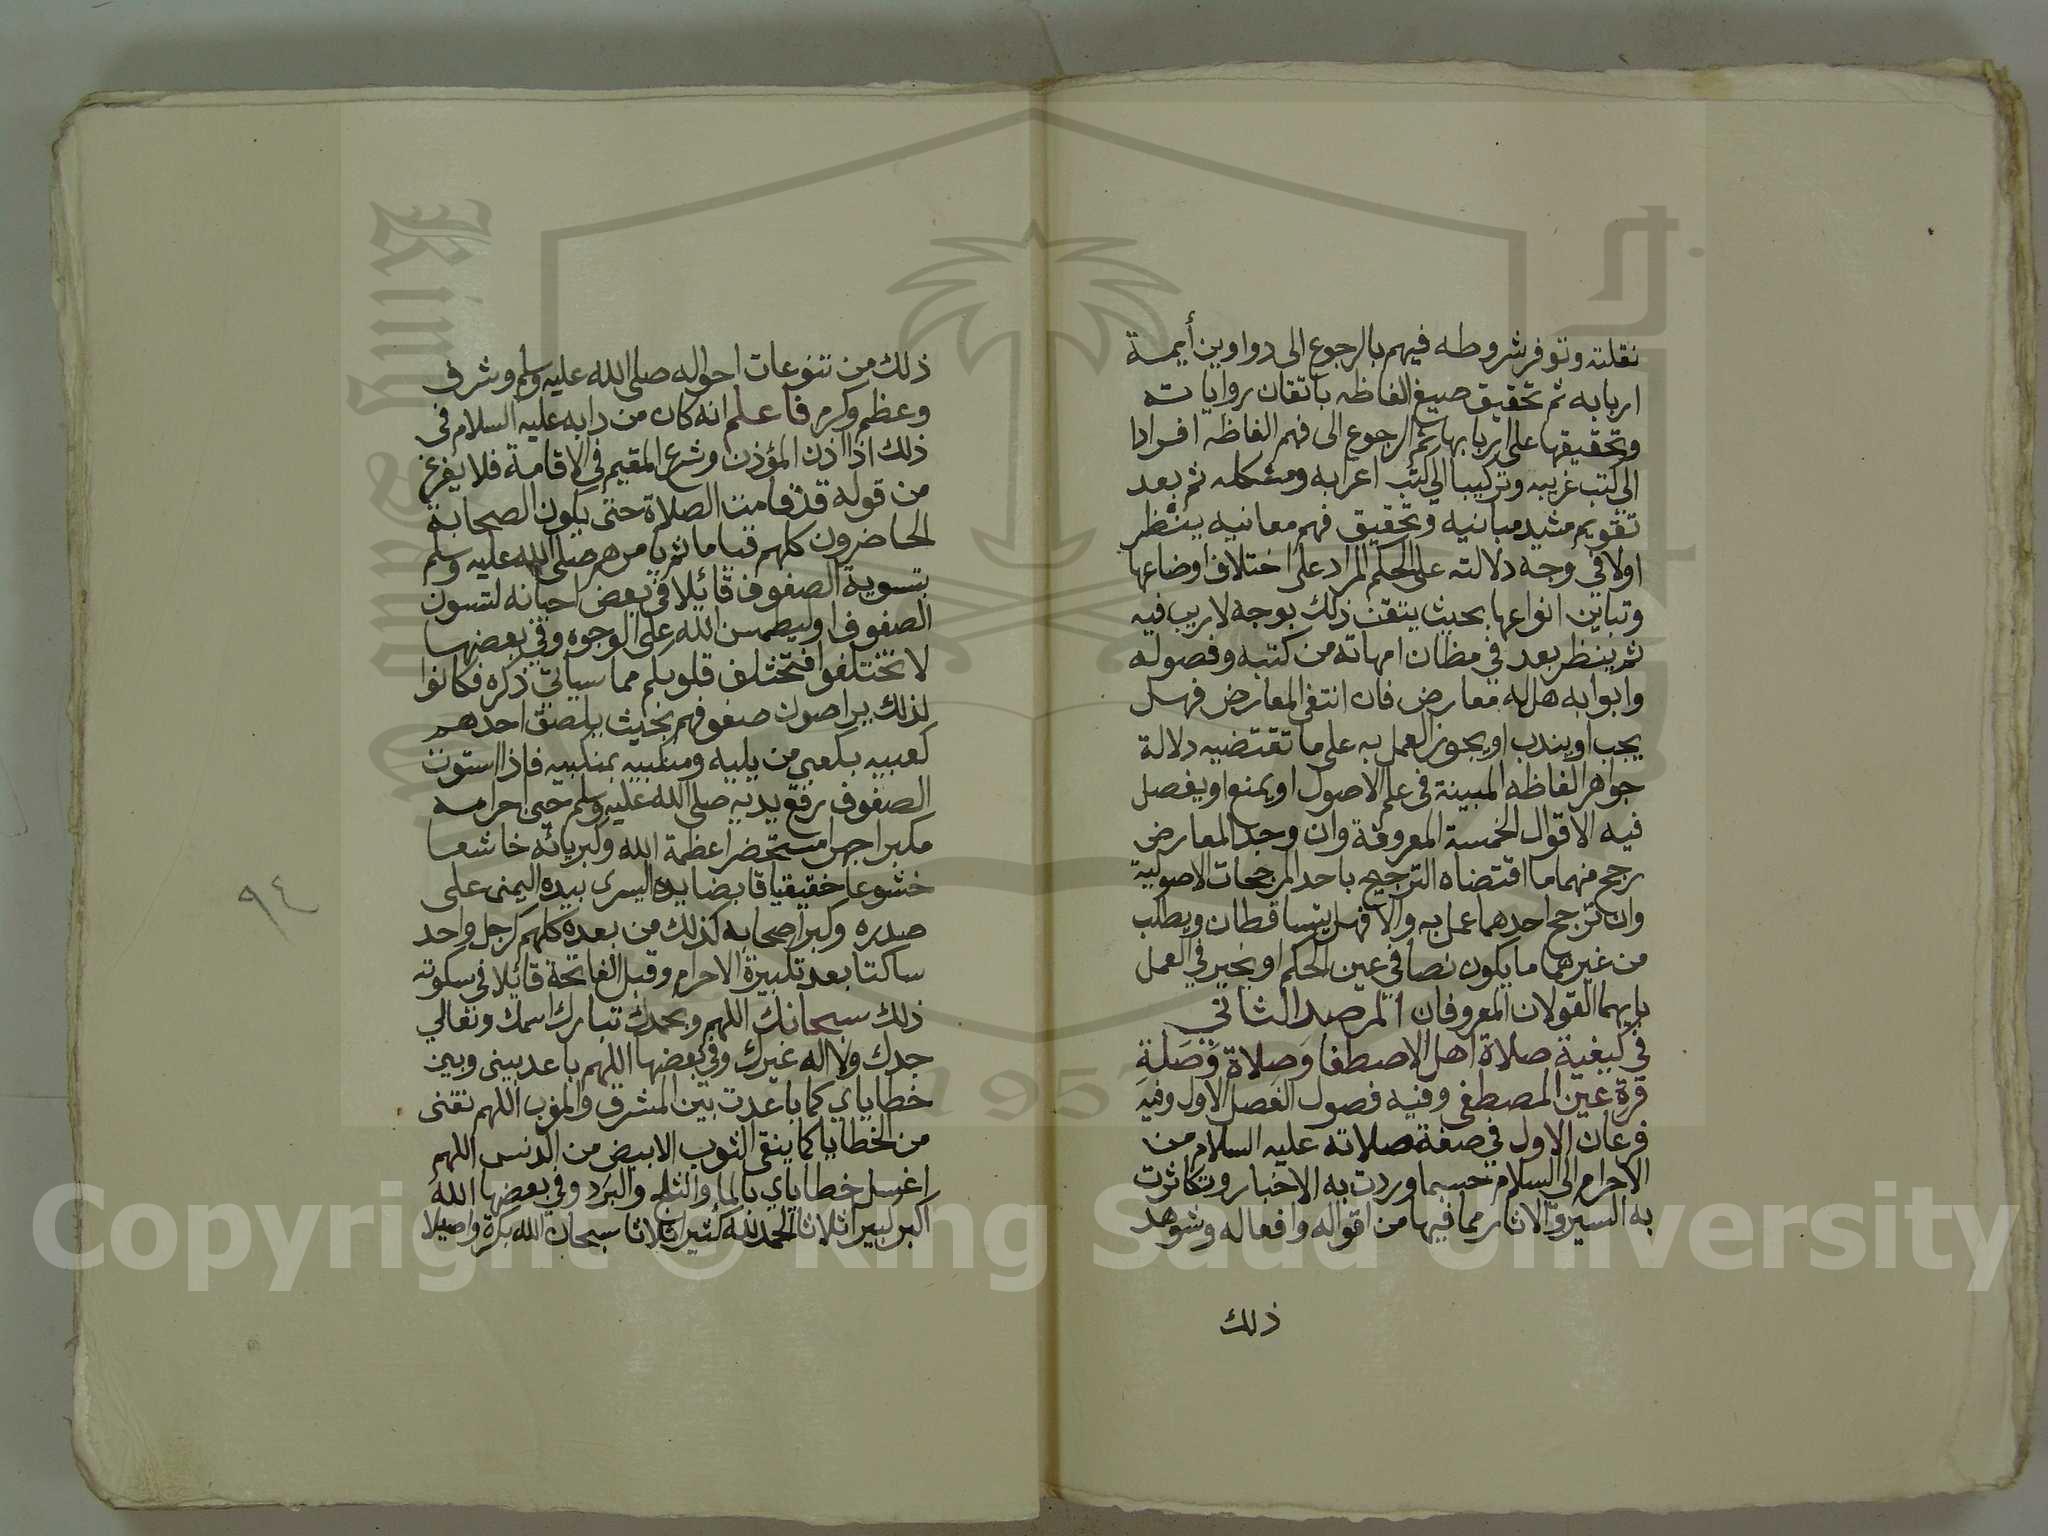 نقلته وتوفر شروطه فيهم بالرجوع الى دواوين أيمة
اربابه ثم تحقيق صيغ الفاظه باتقان رواياته
وتحقيقها على اربابها ثم الرجوع الى فهم الفاظه افرادا
الى كتب غريبه وتركيبا الى كتب اعرابه ومشكله ثم بعد
تقويم مشيد مبانيه وتحقيق فهم معانيه ينظر
اولا في وجه دلالته على الحكم المراد على اختلاف اوضاعها
وتباين انواعها بحيث يتقن ذلك بوجه لاريب فيه
ثم ينظر بعد في مظان امهاته من كتبه وفصوله
وابوابه هل له معارض فان انتفى المعارض فهل
يجب او يندب او يجوز العمل به على ما تقتضيه دلالة
جواهر الفاظه المبينة في علم الاصول او يمنع او يفصل
فيه الاقوال الخمسة المعروفة وان وجد المعارض
رجح منهما ما اقتضاه الترجيح باحد المرجحات الاصولية
وان ترجح احدهما عمل به والا فهل يتساقطان ويطلب
من غيرهما ما يكون نصا في عين الحكم او يخير في العمل
بايهما القولان المعروفان المرصد الثاني
في كيفية صلاة اهل الاصطفا وصلاة وصلة
قرة عين المصطفى وفيه فصول الفصل الاول وفيه
فرعان الاول في صفة صلاته عليه السلام من
الاحرام الى السلام حسبما وردت به الاخبار وتكاثرت
به السير والاثار مما فيها من اقواله وافعاله وشوهد
ذلك
ذلك من تنوعات احواله صلى الله عليه وسلم وشرف
وعظم وكرم فاعلم انه كان من دابه عليه السلام في
ذلك اذا اذن المؤذن وشرع المقيم في الاقامة فلا يفرغ
من قوله قد قامت الصلاة حتى يكون الصحابة
الحاضرون كلهم قياما ثم يامرهم صلى الله عليه وسلم
بتسوية الصفوف قائلا في بعض احيانه لتسون
الصفوف او ليطمسن الله على الوجوه وفي بعضها
لا تختلفوا فتختلف قلوبكم مما سياتي ذكره فكانوا
لذلك يراصون صفوفهم بحيث يلصق احدهم
كعبيه بكعبي من يليه ومنكبيه بمنكبيه فاذا استوت
الصفوف رفع يديه صلى الله عليه وسلم حين احرامه
مكبرا جهرا مستحضرا عظمة الله وكبريائه خاشعا
خشوعا حقيقيا قابضا يده اليسرى بيده اليمنى على
صدره وكبر اصحابه كذلك من بعده كلهم كرجل واحد
ساكتا بعد تكبيرة الاحرام وقبل الفاتحة قائلا في سكوته
ذلك سبحانك اللهم وبحمدك تبارك اسمك وتعالى
جدك ولا اله غيرك وفي بعضها اللهم باعد بيني وبين
خطاياي كما باعدت بين المشرق والمغرب اللهم نقنى
من الخطايا كما ينقى الثوب الابيض من الدنس اللهم
اغسل خطاياي بالماء والثلج والبرد وفي بعضها الله
اكبر كبيرا ثلاثا الحمد لله كثيرا ثلاثا سبحان الله بكرة واصيلا
٩٤
King Saud
1957
Copyright © King Saud University